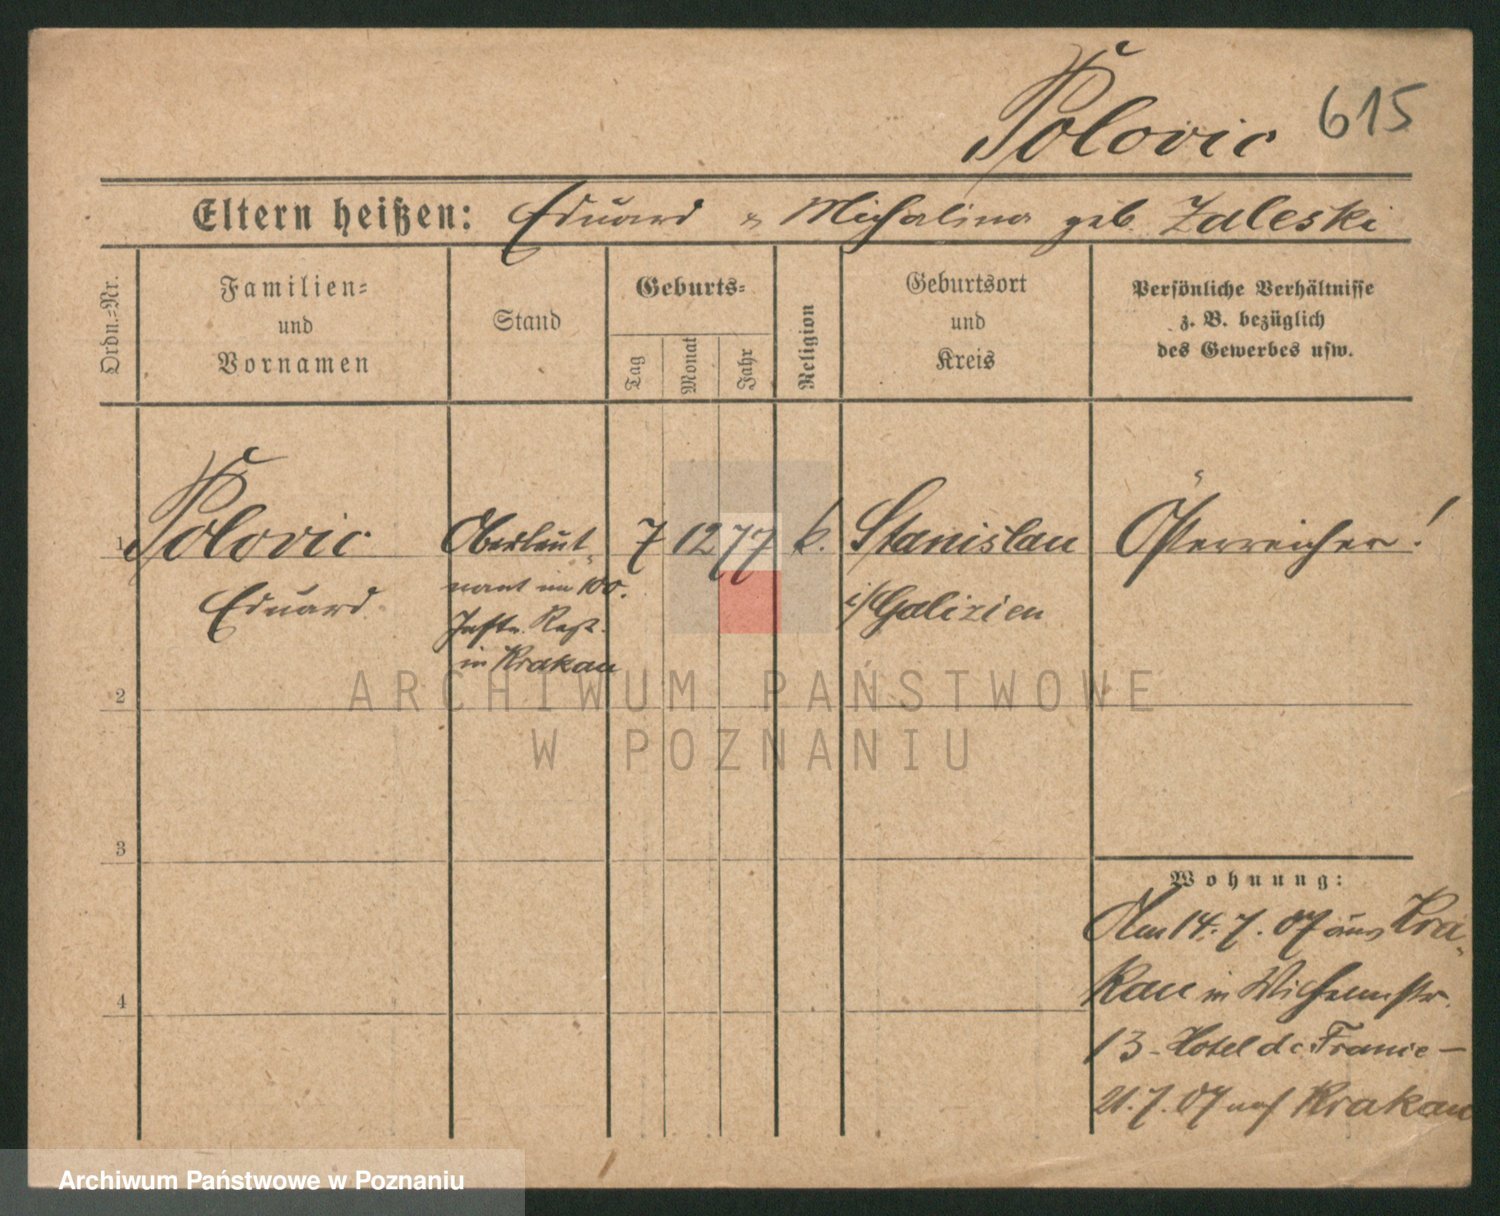 Polovic 615
Eltern heißen: Eduard u Michalina geb. Zaleski
Ordn.=Nr.
Familien=
und
Vornamen
Stand
Geburts=
Tag
Monat
Jahr
Religion
Geburtsort
und
Kreis
Persönliche Verhältnisse
z. B. bezüglich
des Gewerbes usw.
1
Polovic
Eduard
Oberleut-
nant im 100.
Inftr. Regt.
in Krakau
7 12 77 k.
Stanislau
i/Galizien
Österreicher!
2
3
4
Wohnung:
Am 14.7.07 aus Kra-
kau in Wilhelmstr.
13 - Hotel de France -
21.7.07 nach Krakau
ARCHIWUM PAŃSTWOWE
W POZNANIU
Archiwum Państwowe w Poznaniu